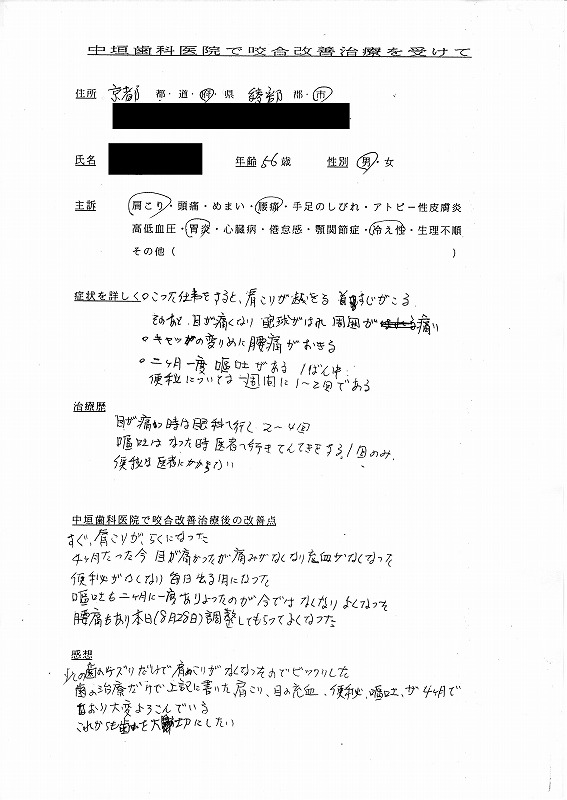 中垣歯科医院で咬合改善治療を受けて
住所 京都 都・道・府・県 綾部 郡・市
氏名 年齢 56歳 性別 男・女
主訴 肩こり・頭痛・めまい・腰痛・手足のしびれ・アトピー性皮膚炎
高低血圧・胃炎・心臓病・倦怠感・顎関節症・冷え性・生理不順
その他( )
症状を詳しく ○こった仕事をすると、肩こりが起きる 首すじがこる
そのあと、目が痛くなり 眼球がはれ 周囲が痛い
○キセツの変りめに腰痛がおきる
○二ヶ月一度嘔吐がある 1ばん中
便秘については一週間に1~2回である
治療歴
目が痛い時は眼科へ行く 2~4回
嘔吐は なった時 医者へ行き てんてきをする,1回のみ.
便秘は医者にかからない
中垣歯科医院で咬合改善治療後の改善点
すぐ、肩こりが、らくになった
4ヶ月たった今 目が痛かったが痛みがなくなり充血がなくなった
便秘がなくなり 毎日出る用になった
嘔吐も二ヶ月に一度ありよったのが今ではなくなりよくなった
腰痛もあり本日(8月28日)調整してもらってよくなった
感想
少しの歯のケズリだけで肩こりがなくなったのでビックリした
歯の治療だけで上記に書いた肩こり、目の充血、便秘、嘔吐、が4ヶ月で
なおり大変よろこんでいる
これからも歯を大切にしたい